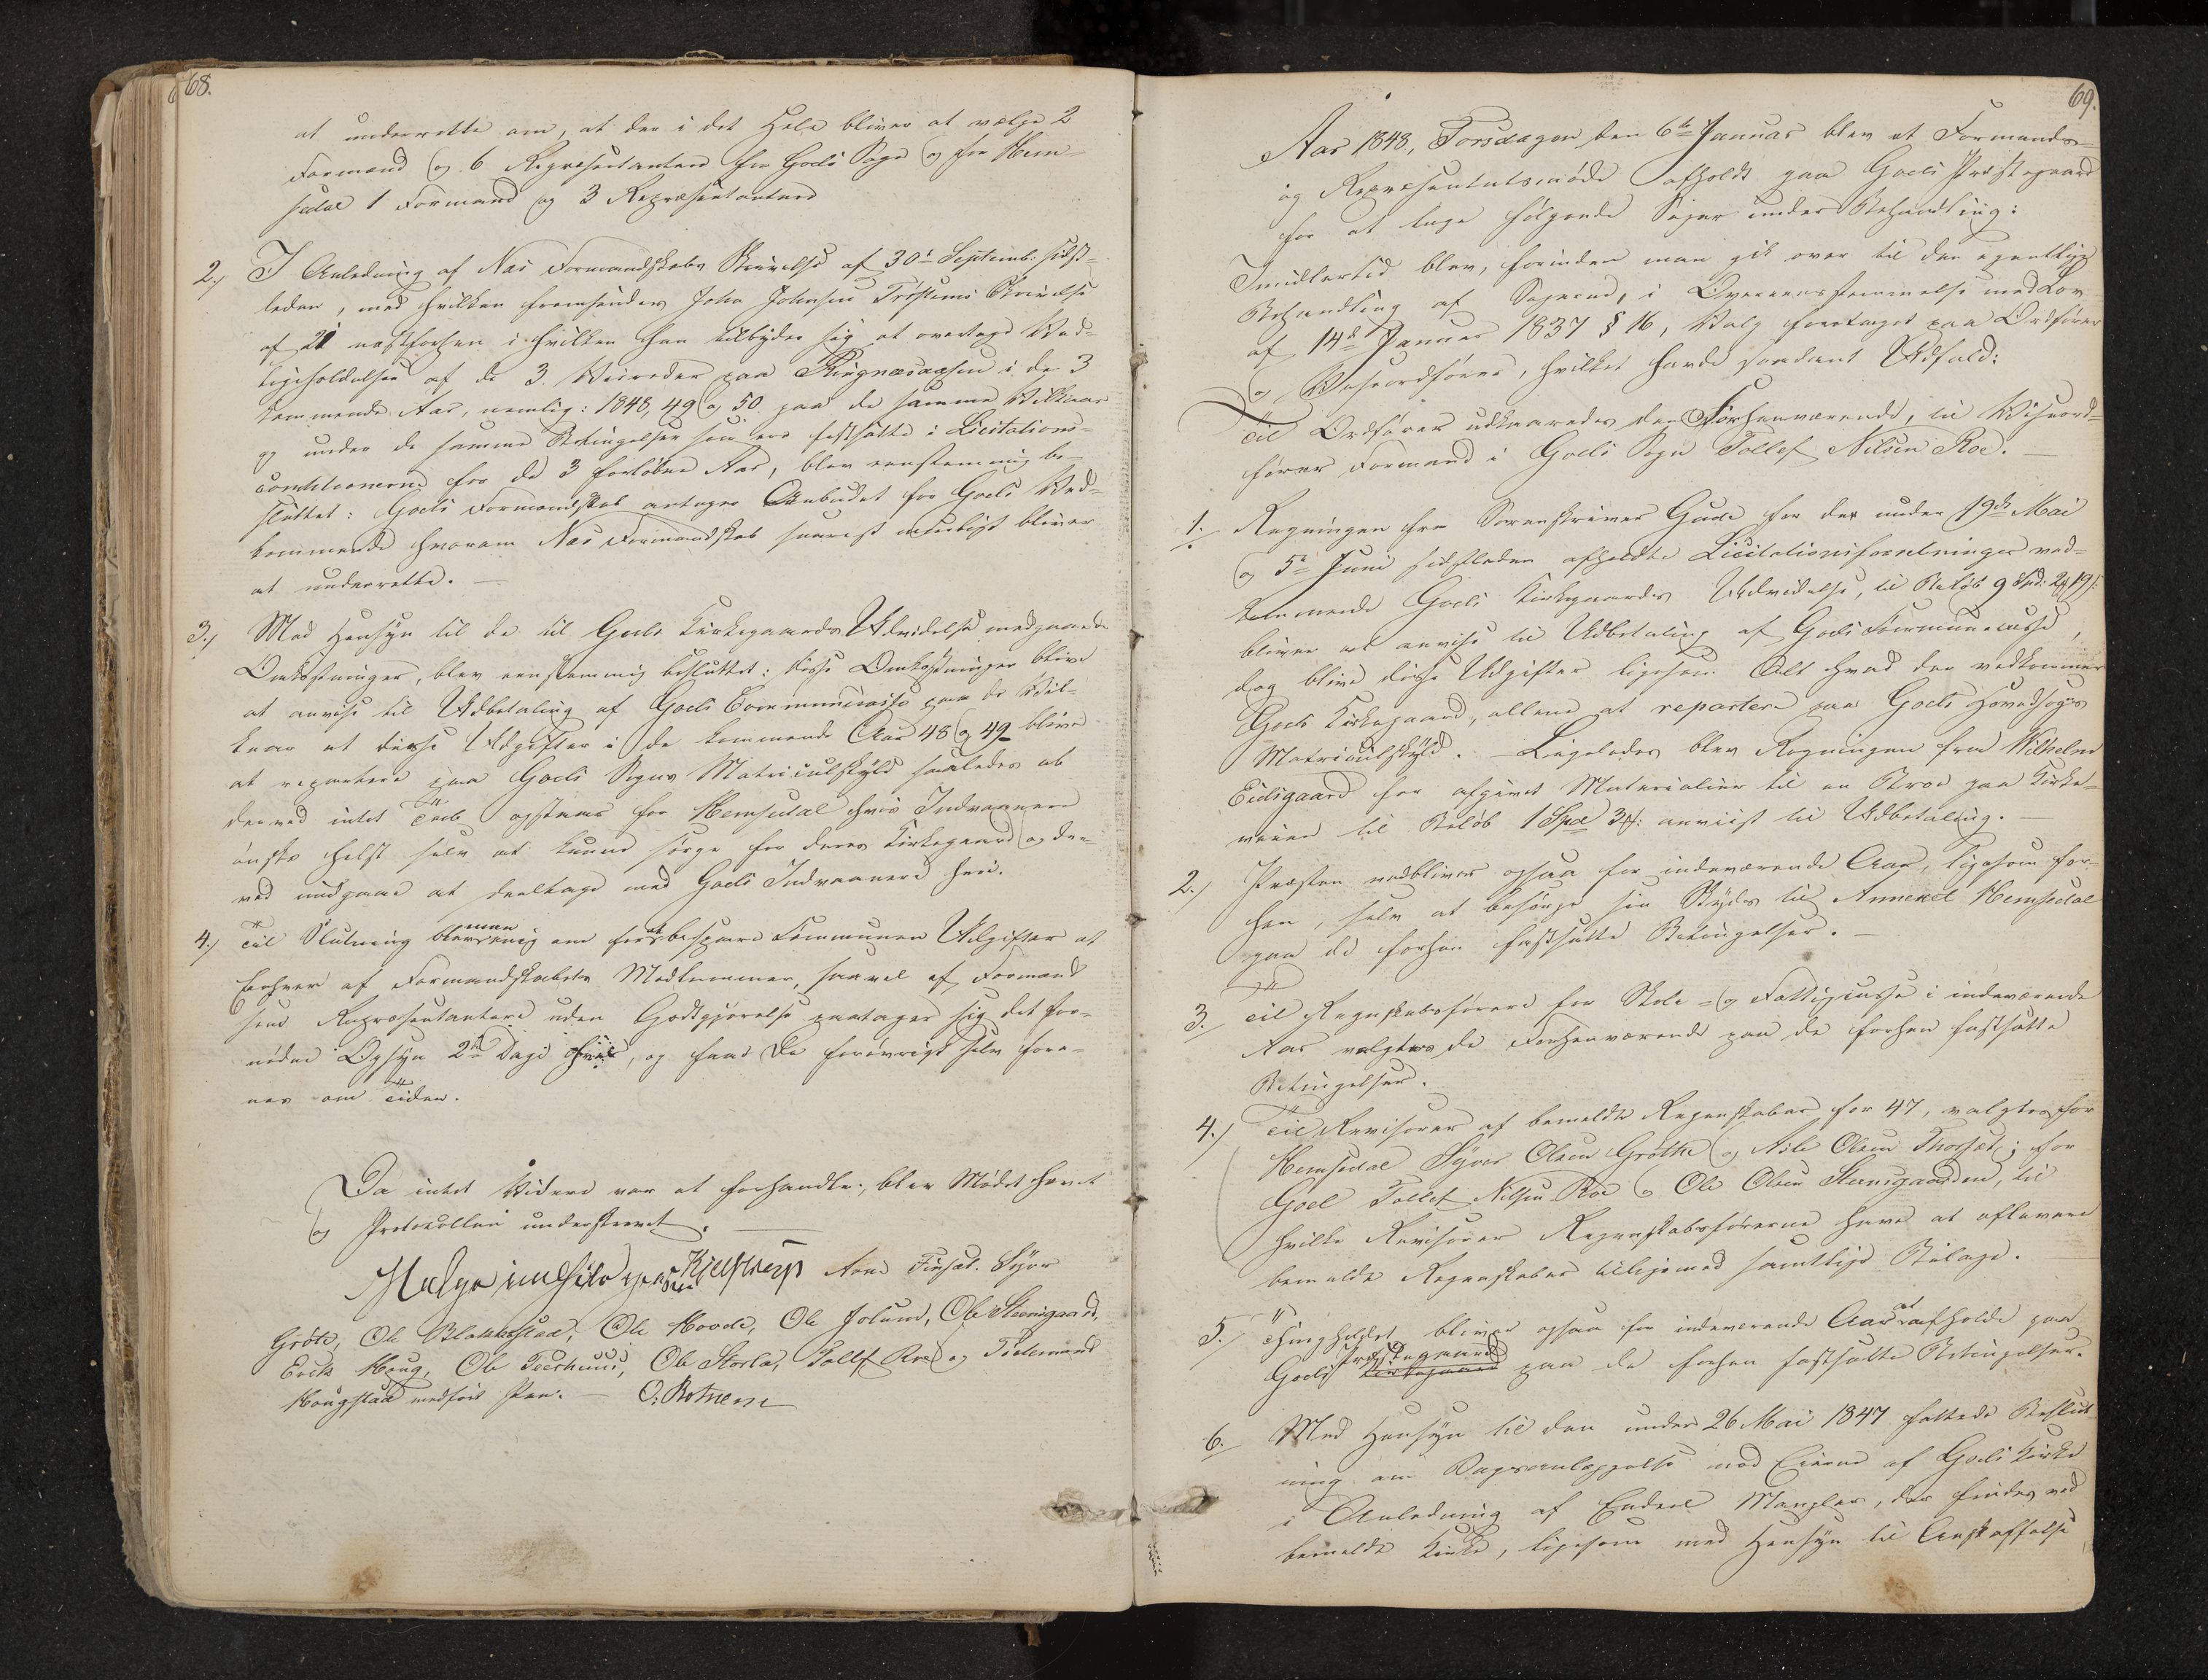 68.
at underrette om, at der i det Hele bliver at vælge 2
Formænd og 6 Repræsentantere for Goels Sogn og for Hem-
sedal 1 Formand og 3 Repræsentantere
2.) I Anledning af Næs Formandskabs Skrivelse af 30te Septemb: sidst-
leden, med hvilken fremsendes John Johnsen Trøstems Skrivelse
af 21 næstforhen i hvilken han tilbyder sig at overtage Ved-
ligeholdelsen af de 3 Veiroder paa Ringnæsaasen i de 3
kommende Aar, nemlig: 1848, 49 og 50 paa de samme Vilkaar
og under de samme Betingelser som ere fastsatte i Licitations-
conditionerne for de 3 forløbne Aar, blev eenstemmig be-
sluttet: Goels Formandskab antager Anbudet for Goels Ved-
kommende hvorom Næs Formandskab snarest mueligt bliver
at underrette. —
3.) Med Hensyn til de til Goels Kirkegaards Udvidelse medgaaede
Omkostninger, blev eenstemmig besluttet: disse Omkostninger blive
at anvise til Udbetaling af Goels Communecasse paa de Vil-
kaar at disse Udgifter i de kommende Aar 48 og 49 blive
at repartere paa Goels Sogns Matriculskyld saaledes at
derved intet Tab opstaaer for Hemsedal hvis Indvaanere
ønske helst selv at kunne sørge for deres Kirkegaard og der-
ved undgaae at deeltage med Goels Indvaanere heri.
4.) Til Slutning blev man enig om for at bespare Communen Udgifter at
Enhver af Formandskabets Medlemmer, saavel af Formænd
som Repræsentantere uden Godtgjørelse paatager sig det for-
nødne Opsyn 2de Dage hver, og have De forøvrigt selv fore-
nes om Tiden.
Da intet Videre var at forhandle, blev Mødet hævet
og Protocollen underskrevet. —
Helge Kjelstrup Arne Finset. Syver
Grøte, Ole Blakkestad, Ole Hoode, Ole Jolund, Ole Steensgaard,
Erik Haug, Ole Teerhuus, Ole Storla, Tollef Roe og Tidemand
Hougstad medført Pen. — O. Botnem
69.
Aar 1848, Torsdagen den 6te Januar blev et Formands-
og Repræsentantsmøde afholdt paa Goels Præstegaard
for at tage følgende Sager under Behandling:
Imidlertid blev, forinden man gik over til den egentlige
Behandling af Sagerne, i Overeensstemmelse med Lov
af 14de Januar 1837 § 16, Valg foretaget paa Ordfører
og Viseordfører, hvilket havde saadant Udfald:
Til Ordfører udkaaredes den Forhenværende, til Viseord-
fører Formand i Goels Sogn Tollef Nilsen Roe. —
1. Regningen fra Sorenskriver Gude for der under 19de Mai
og 5te Juni sidstleden afholdte Licitationsforretninger ved-
kommende Goels Kirkegaards Udvidelse, til Beløb 9 Spd: 2 ort 19 s.
bliver at anvise til Udbetaling af Goels Communecasse,
dog blive disse Udgifter ligesom Alt hvad der vedkommer
Goels Kirkegaard, allene at repartere paa Goels Hovedsogns
Matriculskyld. — Ligeledes blev Regningen fra Wilhelm
Eidsgaard for afgivet Materialier til en Broe paa Kirke-
veien til Beløb 1 Spd 3 ort: anviist til Udbetaling. —
2.) Præsten vedbliver ogsaa for indeværende Aar, ligesom for-
hen, selv at besørge sin Skyds til Annexet Hemsedal
paa de forhen fastsatte Betingelser. —
3. Til Regnskabsførere for Skole- og Fattigcasse i indeværende
Aar valgtes de Forhenværende paa de forhen fastsatte
Betingelser.
4.) Til Revisorer af bemeldte Regnskaber for 47, valgtes for
Hemsedal Syver Olsen Grøthe og Asle Olsen Thorset; for
Goel Tollef Nilsen Roe og Ole Olsen Steensgaarden, til
hvilke Revisorer Regnskabsførerne have at aflevere
bemeldte Regnskaber tilligemed samtlige Bilage.
5.) Thingholdet bliver ogsaa for indeværende Aar at afholde paa
Goels Præstegaard paa de forhen fastsatte Betingelser.
6. Med Hensyn til den under 26 Mai 1847 fattede Beslut-
ning om Sagsanlæggelse mod Eierne af Goels Kirke
i Anledning af Endeel Mangler, der findes ved
bemeldte Kirke, ligesom med Hensyn til Anskaffelse